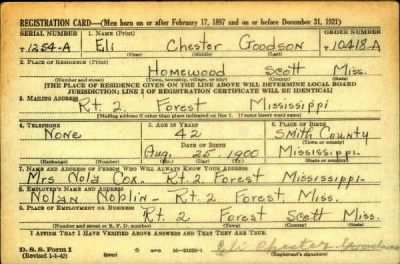 REGISTRATION CARD—(Men born on or after February 17, 1897 and on or before December 31, 1921)
SERIAL NUMBER 1. NAME (Print) ORDER NUMBER
T.1254-A Eli Chester Goodson T.10418-A
(First) (Middle) (Last)
2. PLACE OF RESIDENCE (Print)
Homewood Scott Miss.
(Number and street) (Town, township, village, or city) (County) (State)
[THE PLACE OF RESIDENCE GIVEN ON THE LINE ABOVE WILL DETERMINE LOCAL BOARD
JURISDICTION; LINE 2 OF REGISTRATION CERTIFICATE WILL BE IDENTICAL]
3. MAILING ADDRESS
Rt. 2 Forest Mississippi
[Mailing address if other than place indicated on line 2. If same insert word same]
4. TELEPHONE 5. AGE IN YEARS 6. PLACE OF BIRTH
None 42 Smith County
DATE OF BIRTH (Town or county)
Aug. 25 1900 Mississippi
(Exchange) (Number) (Mo.) (Day) (Yr.) (State or country)
7. NAME AND ADDRESS OF PERSON WHO WILL ALWAYS KNOW YOUR ADDRESS
Mrs Nola Cox. Rt. 2. Forest Mississippi.
8. EMPLOYER'S NAME AND ADDRESS
Nolan Noblin - Rt. 2 Forest, Miss.
9. PLACE OF EMPLOYMENT OR BUSINESS
Rt. 2 Forest Scott Miss.
(Number and street or R. F. D. number) (Town) (County) (State)
I AFFIRM THAT I HAVE VERIFIED ABOVE ANSWERS AND THAT THEY ARE TRUE.
D. S. S. Form 1 Eli Chester Goodson
(Revised 1-1-42) (Registrant's signature)